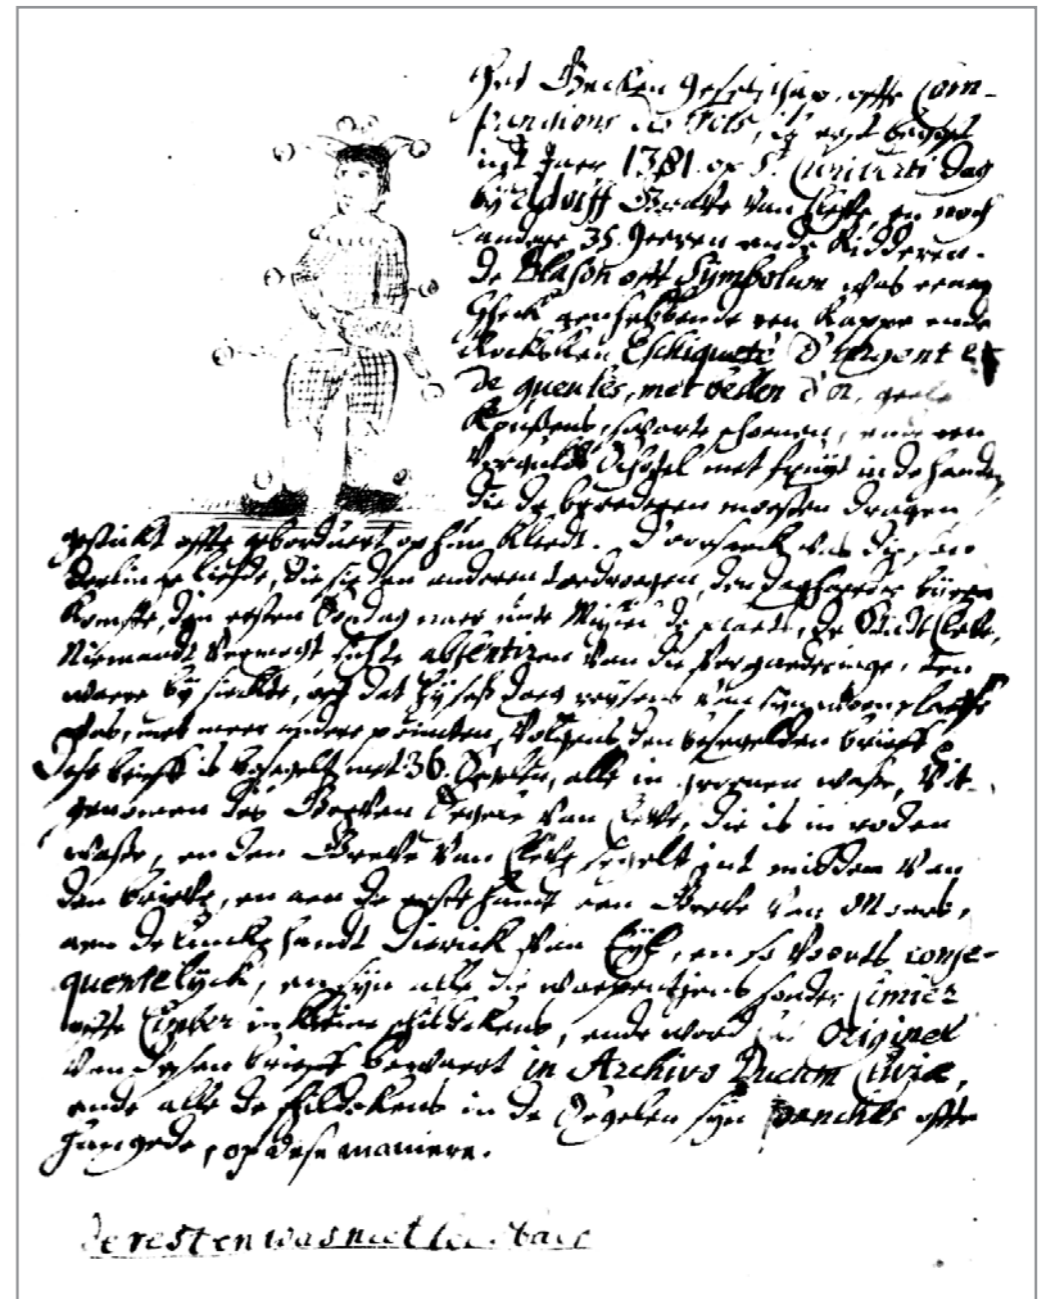 Het Gecken Geselschap, offte Com-
pandions des Fols, is eerst begost
int Jaer 1381 op St. Cuniberts dag
by Adolff Grave van Cleve, en noch
andere 35 heeren ende Ridderen.
De Blason oft Symbolum was eenen
Gheck aenhebbende een kappe ende
Rocksken Eschiqueté d'argent et
de gueules, met bellen d'or, geele
Koussens, swarte schoenen, ende een
vergulde Schotel met fruyt in de handen
die de broederen mosten dragen
gestickt offte geborduert op hun kleedt. D'oorsaeck was die
liefde, die sie den anderen toedroegen, den dagh
komste, den eersten Sondag naer de plaets, de Stadt Cleve,
Niemandt vermocht sich te absentizen van die vergaderinge, ten
waere by sieckte, oft dat hy ses daeg reysens van syn woonplaetse
was, met meer andere pointen, volgens den besegelden brieff
Dese brieff is besegelt met 36 Segelen, alle in groenen wasse, uit-
genomen des Graven Segele van Cleve, die is in roden
wasse, en den Grave van Cleve segelt int midden van
den brieve, en aen de rechte handt een Grave van Moers,
aen de lincke handt Dierick van Eyl, en so voorts conse-
quentelyck, en syn alle die waepentjens sonder Cimier
offte Timber in kleine schildekens, ende word het Originel
van desen brieff bewaert in Archivo Ducum Cliviæ,
ende alle de schildekens in de Segelen syn panchés offte
hangede, op dese maniere.
de resten was niet leesbaer